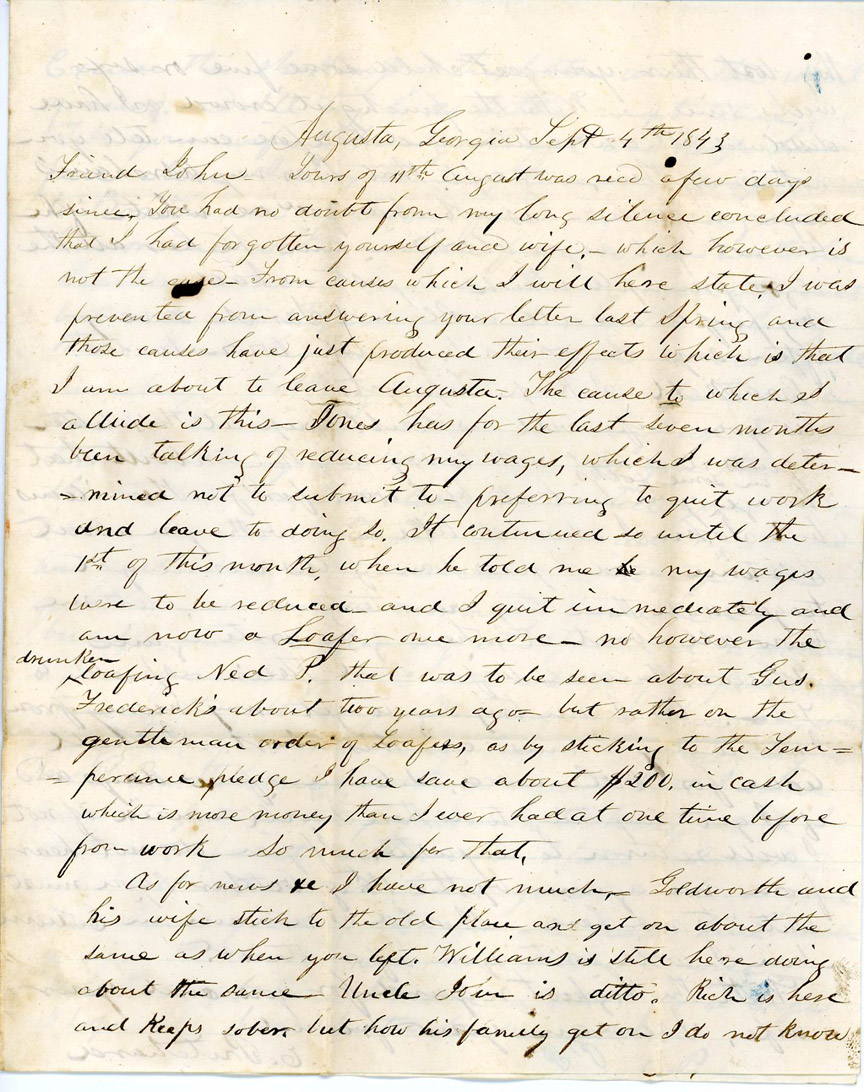 Augusta, Georgia Sept 4th 1843
Friend John Yours of 11th August was recd a few days
since. You had no doubt from my long silence concluded
that I had forgotten yourself and wife, - which however is
not the case - From causes which I will here state, I was
prevented from answering your letter last Spring and
those causes have just produced their effects which is that
I am about to leave Augusta. The cause to which I
allude is this - Jones has for the last seven months
been talking of reducing my wages, which I was deter=
=mined not to submit to - preferring to quit work
and leave to doing so. It continued so until the
1st of this month, when he told me my wages
were to be reduced - and I quit immediately and
am now a Loafer one more - no however the
drunken
Loafing Ned P. that was to be seen about Gus.
Frederick's about two years ago - but rather on the
gentleman order of Loafers, as by sticking to the Tem=
=perance pledge I have save about $200. in cash
which is more money than I ever had at one time before
from work so much for that,
As for news I have not much, - Goldworth and
his wife stick to the old place and get on about the
same as when you left. Williams is still here doing
about the same Uncle John is ditto. Rich is here
and Keeps sober, but how his family get on I do not know